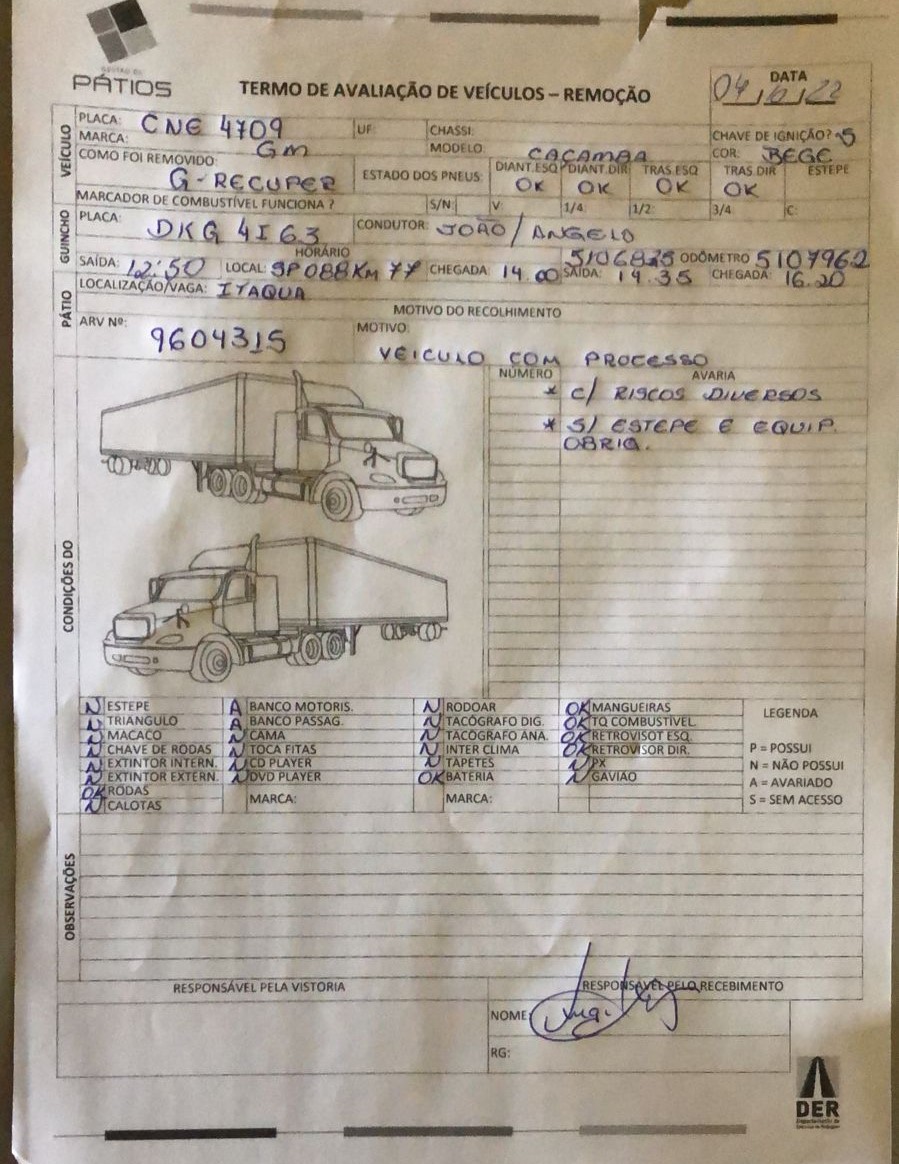 PÁTIOS
TERMO DE AVALIAÇÃO DE VEÍCULOS – REMOÇÃO
DATA
VEÍCULO
PLACA: CNE 4709 UF: CHASSI: CHAVE DE IGNIÇÃO? S
MARCA: GM MODELO: CAÇAMBA COR: BEGE
COMO FOI REMOVIDO: G-RECUPER ESTADO DOS PNEUS: DIANT.ESQ OK DIANT.DIR OK TRAS.ESQ OK TRAS.DIR OK ESTEPE
MARCADOR DE COMBUSTÍVEL FUNCIONA ? S/N: V: 1/4: 1/2: 3/4 C:
GUINCHO
PLACA: DKG 4I63 CONDUTOR: JOÃO/ANGELO
HORÁRIO 5106835 ODÔMETRO 5107962
SAÍDA: 12:50 LOCAL: SP 088 KM 77 CHEGADA: 14.00 SAÍDA: 14.35 CHEGADA 16.20
PÁTIO
LOCALIZAÇÃO/VAGA: ITAQUA
MOTIVO DO RECOLHIMENTO
ARV Nº: 9604315 MOTIVO: VEICULO COM PROCESSO
CONDIÇÕES DO
NÚMERO AVARIA
* C/ RISCOS DIVERSOS
* S/ ESTEPE E EQUIP.
OBRIG.
N ESTEPE A BANCO MOTORIS. N RODOAR OK MANGUEIRAS LEGENDA
N TRIANGULO A BANCO PASSAG. N TACÓGRAFO DIG. OK TQ COMBUSTÍVEL.
N MACACO N CAMA N TACÓGRAFO ANA. OK RETROVISOT ESQ.
N CHAVE DE RODAS N TOCA FITAS N INTER CLIMA OK RETROVISOR DIR. P = POSSUI
N EXTINTOR INTERN. N CD PLAYER N TAPETES N PX N = NÃO POSSUI
N EXTINTOR EXTERN. N DVD PLAYER OK BATERIA N GAVIÃO A = AVARIADO
OK RODAS
N CALOTAS MARCA: MARCA: S = SEM ACESSO
OBSERVAÇÕES
RESPONSÁVEL PELA VISTORIA RESPONSÁVEL PELO RECEBIMENTO
NOME:
RG:
DER